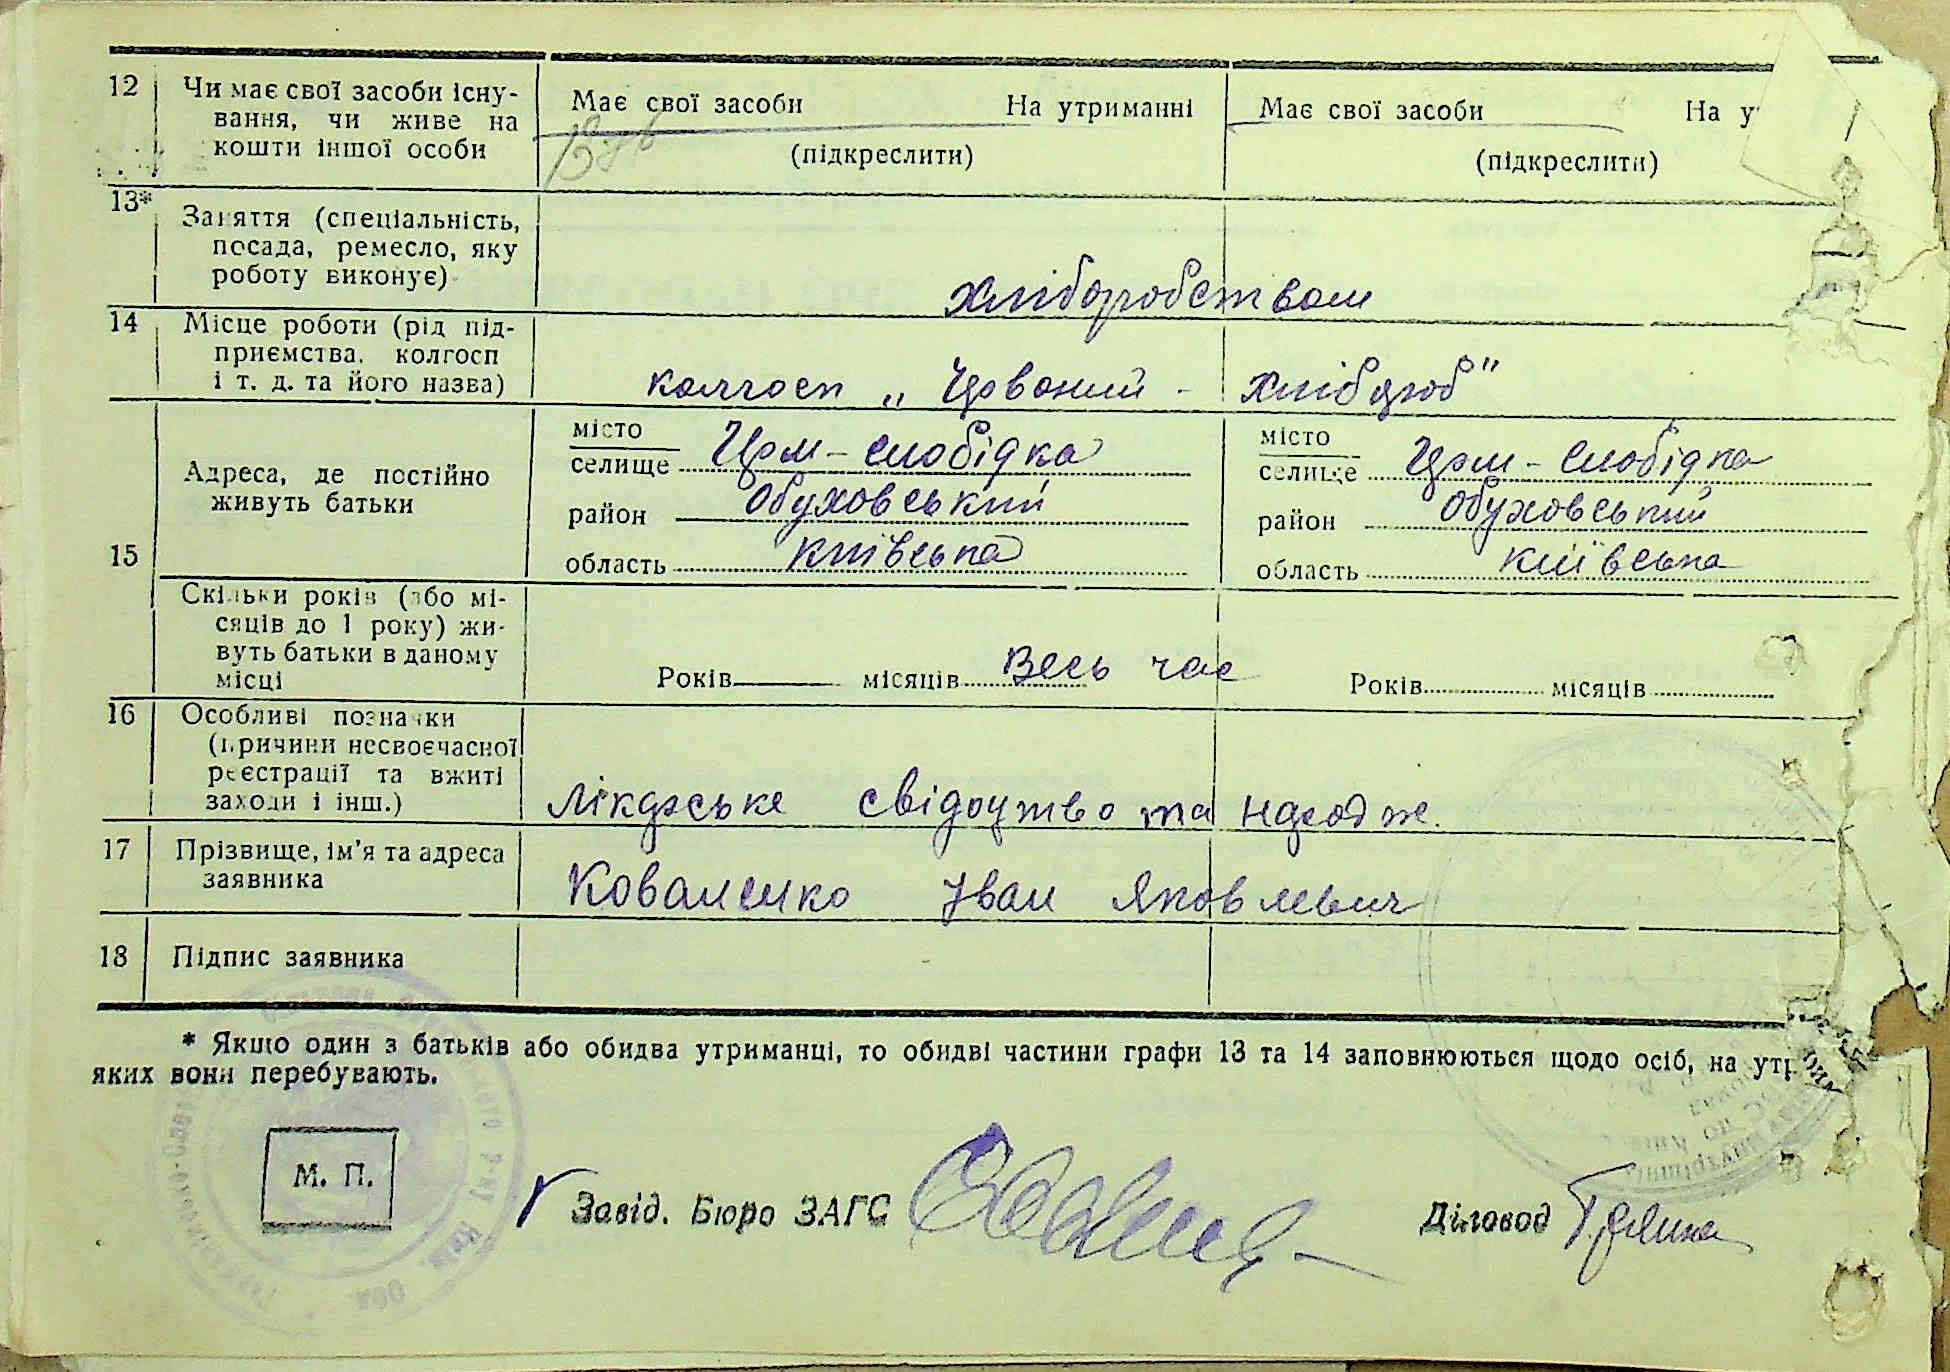 12
Чи має свої засоби існу-
вання, чи живе на
кошти іншої особи
Має свої засоби На утриманні
(підкреслити)
Має свої засоби На у
(підкреслити)
13*
Заняття (спеціальність,
посада, ремесло, яку
роботу виконує)
хліборобством
14
Місце роботи (рід під-
приємства, колгосп
і т. д. та його назва)
колгосп „ Червоний - хлібороб"
15
Адреса, де постійно
живуть батьки
місто
селище Гром-Слобідка
район Обуховський
область київська
місто
селище Гром-Слобідка
район Обуховський
область київська
Скільки років (або мі-
сяців до 1 року) жи-
вуть батьки в даному
місці
Років місяців Весь час
Років місяців
16
Особливі позначки
(причини несвоєчасної
реєстрації та вжиті
заходи і інш.)
Лікарське свідоцтво та народж.
17
Прізвище, ім'я та адреса
заявника
Коваленко Іван Яковлевич
18
Підпис заявника
* Якщо один з батьків або обидва утриманці, то обидві частини графи 13 та 14 заповнюються щодо осіб, на утрим
яких вони перебувають.
М. П.
Завід. Бюро ЗАГС
Діловод